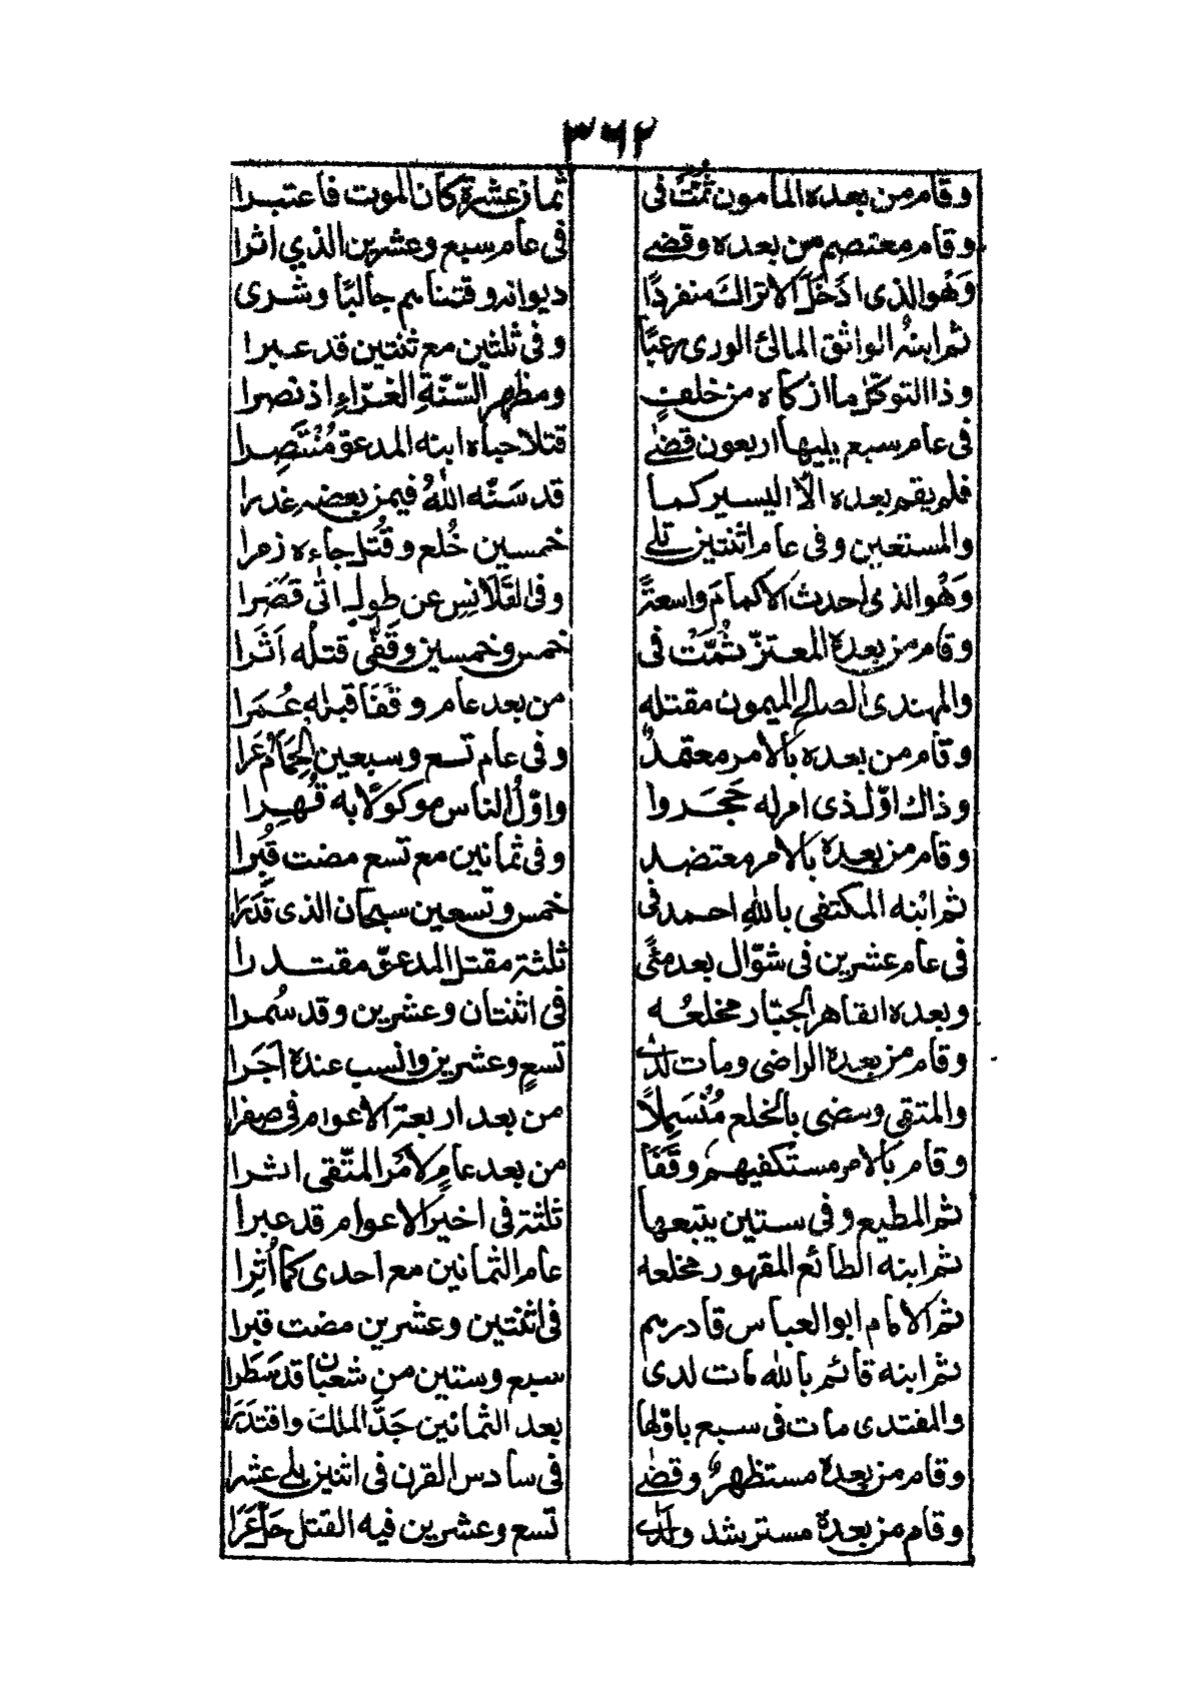 ٣٦٢
وقام من بعده المامون ثمت فى ثمان عشرة كان الموت فاعتبرا
وقام معتصم من بعده وقضى فى عام سبع وعشرين الذي اثرا
وهو الذى ادخل الاتراك منفردًا ديوانه واقتناهم جالبًا وشرى
ثم ابنه الواثق المالئ الورى رعبًا وفى ثلثين مع ثنتين قد عبرا
وذا التوكل ما ازكاه من خلف ومظهر السّنّةِ الغرّاءِ اذ نصرا
فى عام سبع يليها اربعون قضى قتلا حباه ابنه المدعو مُنْتَصِرا
فلم يقم بعده الّا اليسير كما قد سَنّه اللهُ فيمن بعضه غدرا
والمستعين وفى عام اثنتين تلى خمسين خُلع وقُتل جاءه زمرا
وَهُو الذى احدث الاكمام واسعةً وفى القَلَانِسِ عن طول اتى قصَرا
وقام من بعده المعتزّ ثُمّتْ فى خمس وخمسين وقَفّى قتله اَثَرا
والمهتدى الصالح الميمون مقتله من بعد عام وقَفَا قبله عُمَرا
وقام من بعده بالأمر معتمدٌ وفى عام تسع وسبعين الحِمَامُ عَرا
وذاك اوّل ذى امر له حَجَروا واوّلُ الناس موكولًا به قُهِرا
وقام من بعده بالامر معتضد وفى ثمانين مع تسع مضت قُبِرا
ثم ابنه المكتفى باللهِ احمد فى خمس وتسعين سبحان الذى قَدَرَا
فى عام عشرين فى شوّال بعد مئى ثلثة مقتل المدعو مقتدرا
وبعده القاهر الجبّار مخلعُه فى اثنتان وعشرين وقد سُمرا
وقام من بعده الراضى ومات لدى تسعٍ وعشرين وانسب عنده اَجَرا
والمتقى ومضى بالخلع مُنْسَمِلًا من بعد اربعة الاعوام فى صفرا
وقام بالامر مستكفيهم وقَفَا من بعد عامٍ لأمر المتّقى اثرا
ثم المطيع وفى ستين يتبعها ثلثة فى اخير الاعوام قد عبرا
ثم ابنه الطائع المقهور مخلعه عام الثمانين مع احدى كما اُثِرا
ثم الامام ابو العباس قادرهم فى اثنتين وعشرين مضت قبرا
ثم ابنه قائم بالله مات لدى سبع وستين من شعبان قد سَطَرا
والمقتدى مات فى سبع باوّلها بعد الثمانين جَدَّ الملك واقتدَرَا
وقام من بعده مستظهرٌ وقضى فى سادس القرن فى اثنين يلى عشرا
وقام من بعده مسترشد ولدى تسع وعشرين فيه القتل حلّ عَرَا